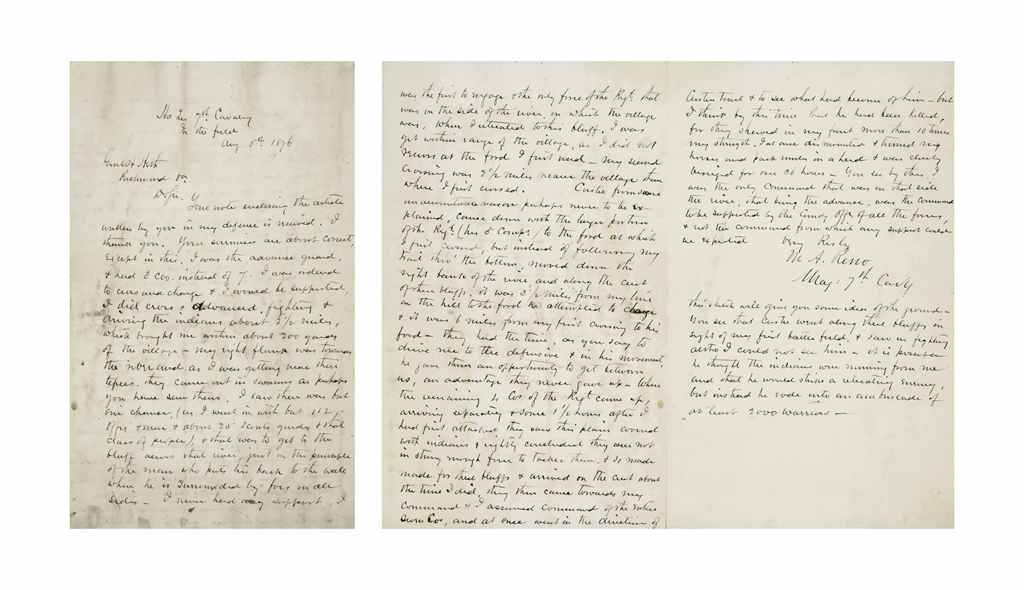 Hd Qrs 7th Cavalry
In the field
Aug 5th 1876
Richmond Va
D Sir,
Your note enclosing the article
written by you in my defence is received. I
thank you. Your surmises are about correct,
except in this. I was the advance guard,
& had 3 cos. instead of 7. I was ordered
to cross and charge & I would be supported,
I did cross, advanced, fighting &
driving the indians about 2½ miles,
which brought me within about 200 yards
of the village — my right flank was towards
the river and as I was getting near their
tepees, they came out in swarms as perhaps
you have seen them. I saw there was but
one chance, (as I went in with but 112
Offrs & men & about 25 scouts guides & that
class of people), & that was to get to the
bluff across that river, just on the principle
of the man who puts his back to the wall
when he is surrounded by foes on all
sides — I never had any support. I
was the first to engage & the only force of the Regt. that
was on the side of the river, on which the village
was, when I retreated to this bluff, I was
yet within range of the village, as I did not
return at the ford I first used — my second
crossing was 2½ miles nearer the village than
where I first crossed. Custer from some
unaccountable reason perhaps never to be ex-
plained, came down with the larger portion
of the Regt. (his 5 Comps.) to the ford at which
I first crossed, but instead of following my
trail thro' the bottom, moved down the
right bank of the river and along the crest
of these bluffs, it was 2½ miles from my line
on the hill to the ford he attempted to charge
& it was 6 miles from my first crossing to his
ford — they had the time, as you say to
drive me to the defensive & in his movement,
he gave them an opportunity to get between
us, an advantage they never gave up — When
the remaining 4 Cos of the Regt came up,
arriving separately & some 1½ hours after I
had first attacked they saw this plain covered
with indians & rightly concluded they were not
in strong enough force to tackle them, & so made
made for these bluffs & arrived on the crest about
the time I did, they then came towards my
command & I assumed command of the whole
seven Cos, and at once went in the direction of
Custer's trail & to see what had become of him — but
I think by this time he had been killed,
for they showed in my front more than 10 times
my strength, I at once dismounted & turned my
horses and pack mules in a herd & was closely
besieged for over 26 hours — You see by this, I
was the only command that was on that side
the river, that being the advance, was the command
to be supported by the Comdg Offr of all the forces,
& not the command from which any support could
be expected
Very Resly
M. A. Reno
Maj. 7th Cavy
this sketch will give you some idea of the ground —
You see that Custer went along these bluffs in
sight of my first battle field, & saw us fighting
altho I could not see him — it is presumed
he thought the indians were running from me
and that he would strike a retreating enemy,
but instead he rode into an ambuscade of
at least 2000 warriors —